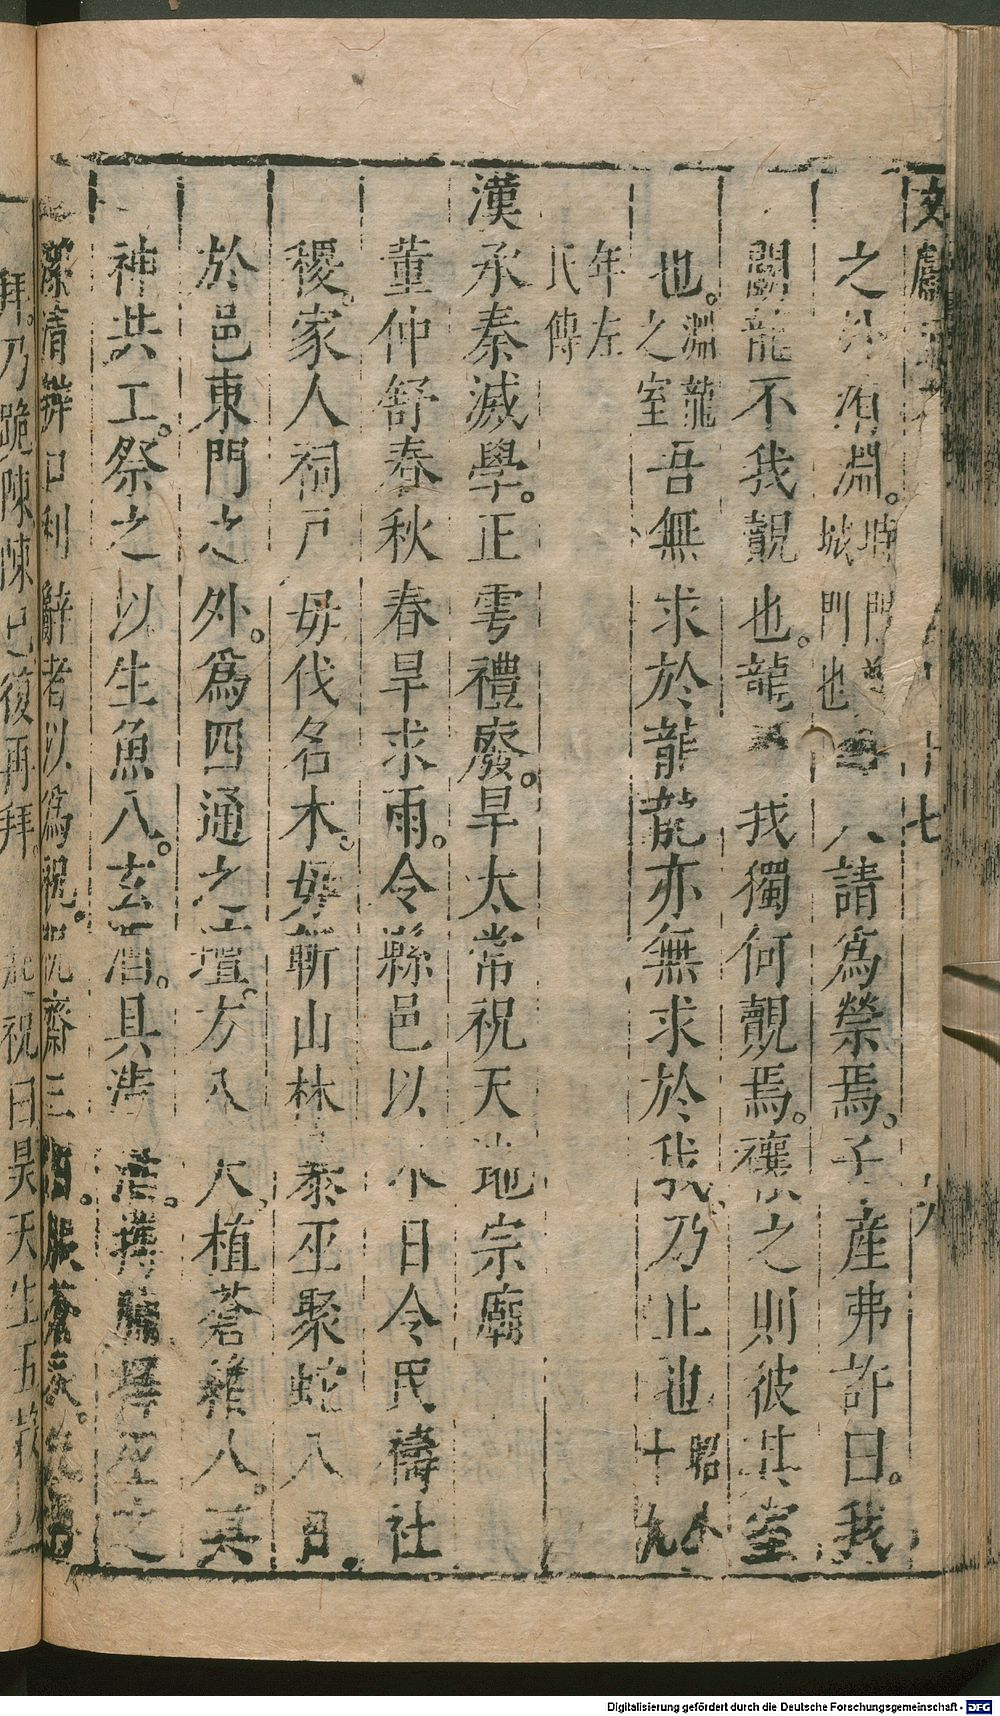 之外洧淵。時門城門也 國人請爲禜焉。子産弗許曰。我
鬬龍不我覿也。龍鬬我獨何覿焉。禳之則彼其室
也。淵龍之室 吾無求於龍龍亦無求於我。乃止也 昭公十九
年左氏傳
漢承秦滅學。正雩禮廢。旱太常祝天地宗廟
董仲舒春秋春旱求雨。令縣邑以水日令民禱社
稷。家人祠戸毋伐名木。毋斬山林 暴巫聚蛇八日。
於邑東門之外。爲四通之壇。方八尺。植蒼繒八。其
神共工。祭之以生魚八。玄酒。具清酒。搏脯擇巫之
潔清辯口利辭者以爲祝。祝齋三日。服蒼衣。先再
拜。乃跪陳陳已復再拜。乃起祝曰昊天生五穀以
Digitalisierung gefördert durch die Deutsche Forschungsgemeinschaft - DFG